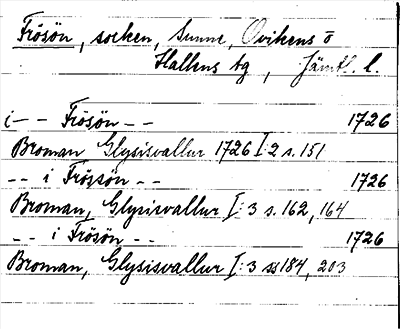 Frösön, socken, Sunne, Ovikens o
Hallens tg, Jämtl. l.
i - - Frösön - - 1726
Broman Glysisvallur 1726 I:2 s. 151
- - i Frösön - - 1726
Broman, Glysisvallur I:3 s. 162, 164
- - i Frösön - - 1726
Broman, Glysisvallur I:3 ss 184, 203